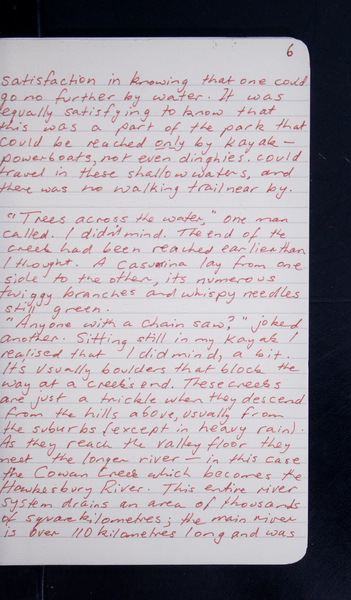 6
satisfaction in knowing that one could
go no further by water. It was
equally satisfying to know that
this was a part of the park that
could be reached only by kayak -
powerboats, not even dinghies. could
travel in these shallow waters, and
there was no walking trail near by.
"Trees across the water," one man
called. I didn't mind. The end of the
creek had been reached earlier than
I thought. A Casuarina lay from one
side to the other, its numerous
twiggy branches and whispy needles
still green.
"Anyone with a chain saw?" joked
another. Sitting still in my kayak I
realised that I did mind, a bit.
It's usually boulders that block the
way at a creek's end. These creeks
are just a trickle when they descend
from the hills above, usually from
the suburbs (except in heavy rain).
As they reach the valley floor they
meet the longer river - in this case
the Cowan Creek which becomes the
Hawkesbury River. This entire river
system drains an area of thousands
of square kilometres; the main river
is over 110 kilometres long and was